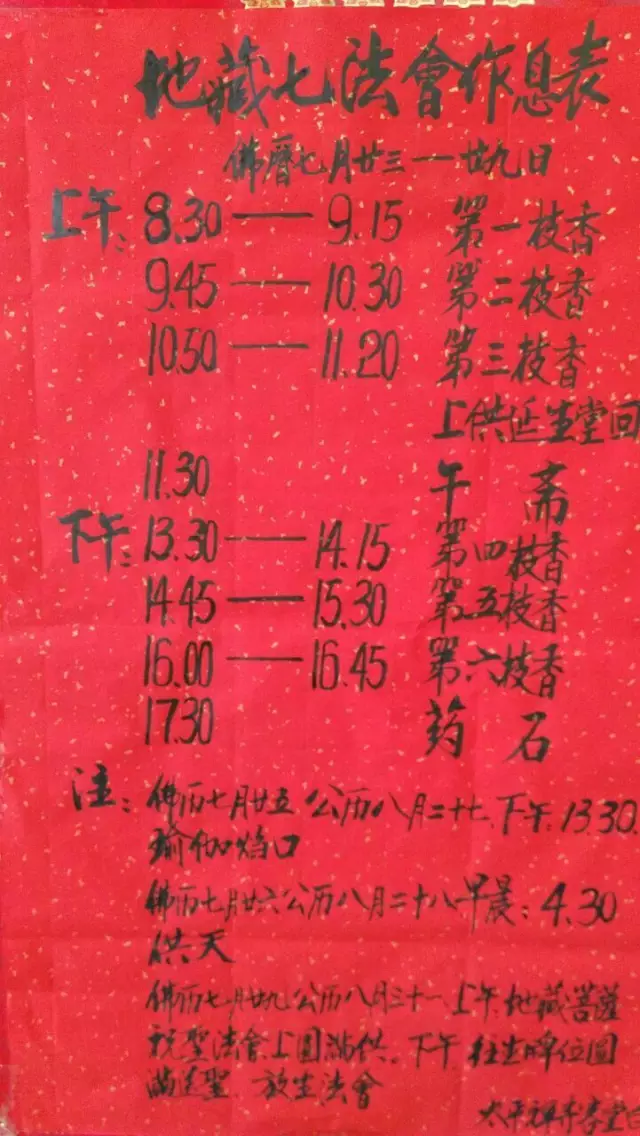 地藏七法會作息表
佛曆七月廿三一廿九日
上午: 8.30 — 9.15 第一枝香
9.45 — 10.30 第二枝香
10.50 — 11.20 第三枝香
上供延生堂回
11.30 午 斋
下午: 13.30 — 14.15 第四枝香
14.45 — 15.30 第五枝香
16.00 — 16.45 第六枝香
17.30 药 石
注: 佛历七月廿五 公历八月二十七.下午:13.30
瑜伽焰口
佛历七月廿六公历八月二十八早晨:4.30
供天
佛历七月廿九公历八月三十一上午.地藏菩薩
祝聖法會上圓滿供.下午 往生牌位圓
滿送聖 放生法會
太平禪寺客堂